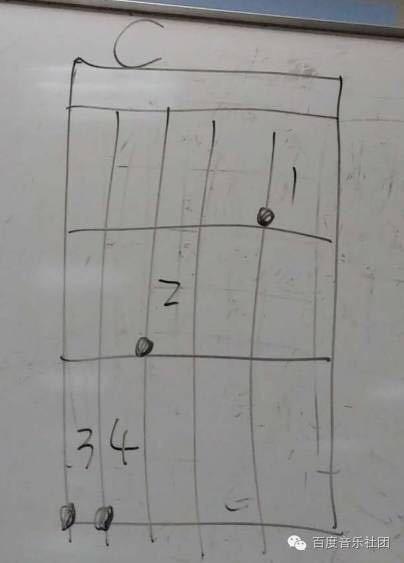 C
1
2
3 4
百度音乐社团